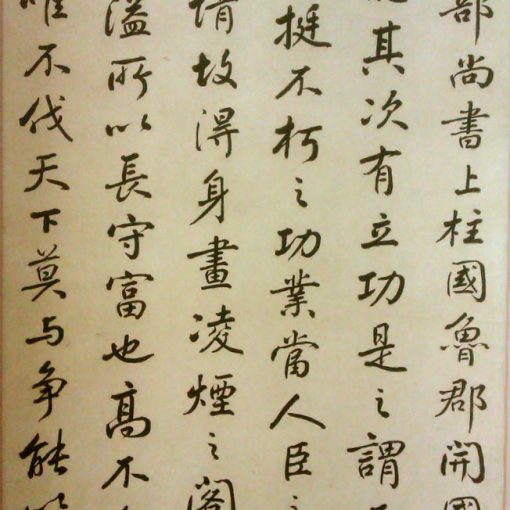 部尚書上柱國魯郡開國
其次有立功是之謂不
挺不朽之功業當人臣之
情故得身畫凌煙之閣
溢所以長守富也高不
唯不伐天下莫与争能以